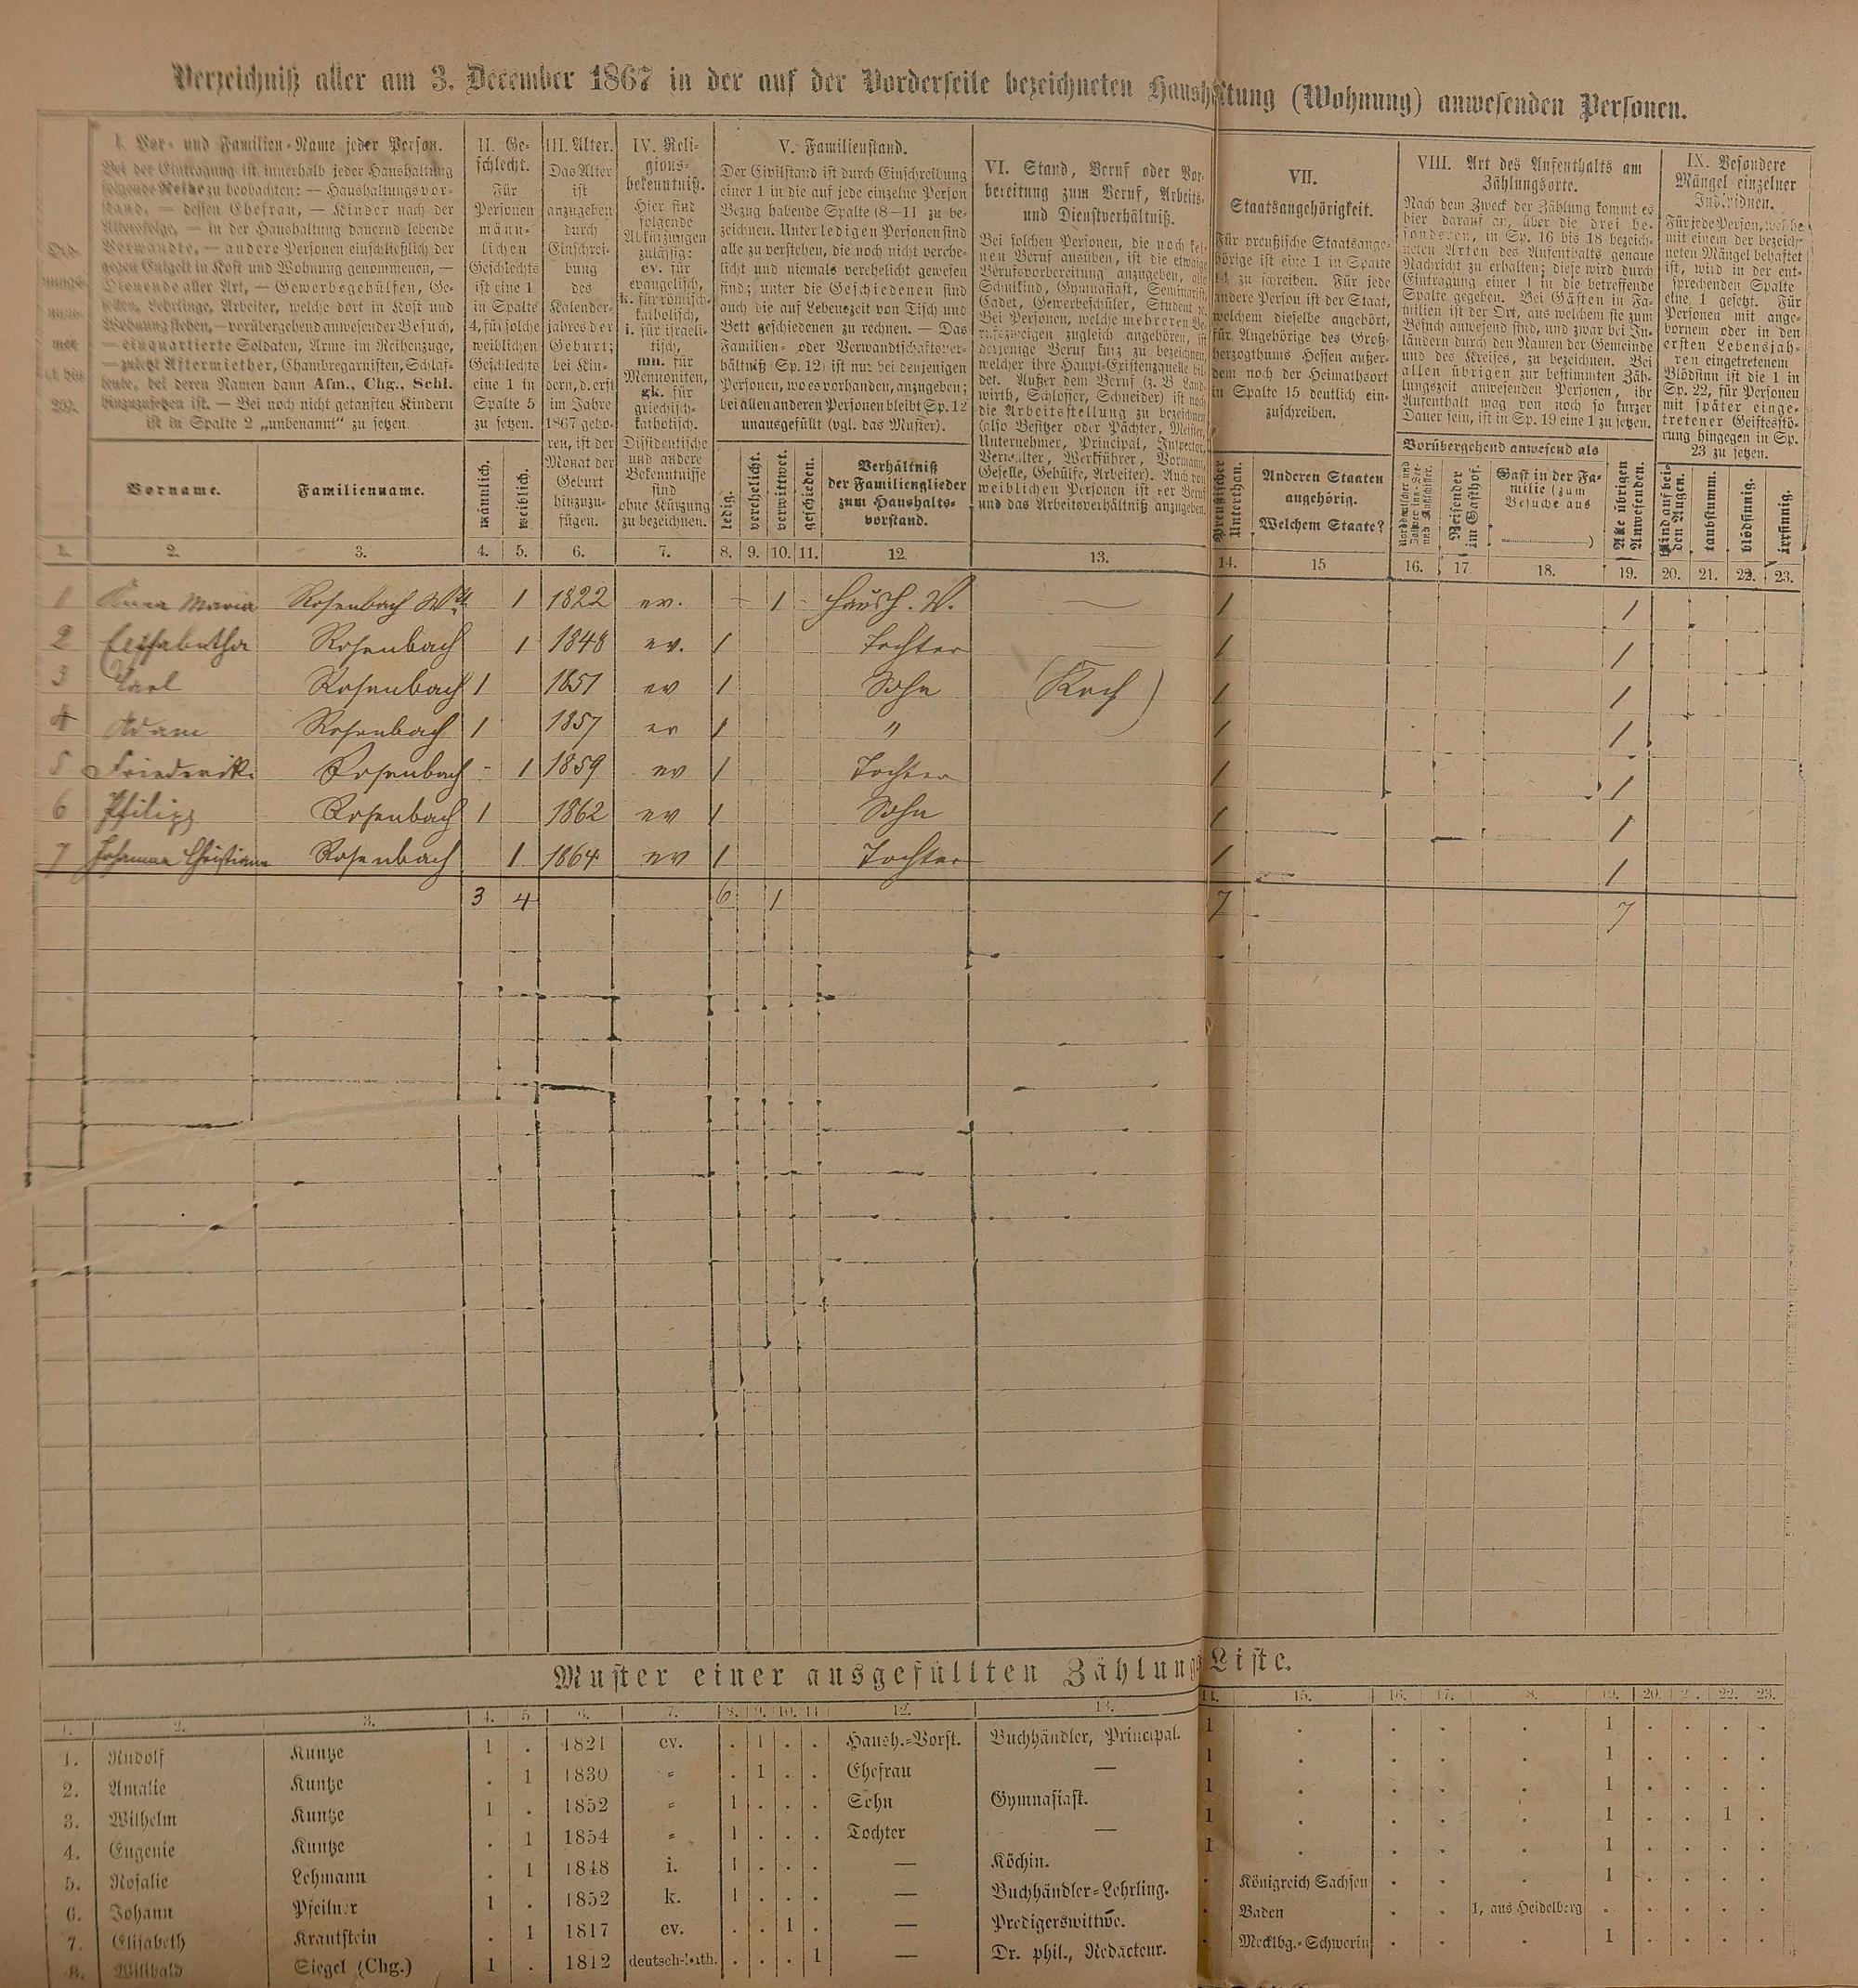 Verzeichniß aller am 3. December 1867 in der auf der Vorderseite bezeichneten Haushaltung (Wohnung) anwesenden Personen.
I. Vor- und Familien-Name jeder Person.
Bei der Eintragung ist innerhalb jeder Haushaltung
folgende Reihe zu beobachten: — Haushaltungsvor-
stand, — dessen Ehefrau, — Kinder nach der
Altersfolge, — in der Haushaltung dauernd lebende
Verwandte, — andere Personen einschließlich der
gegen Entgelt in Kost und Wohnung genommenen, —
Dienende aller Art, — Gewerbsgehülfen, Ge-
sellen, Lehrlinge, Arbeiter, welche dort in Kost und
Wohnung stehen, — vorübergehend anwesender Besuch,
— einquartierte Soldaten, Arme im Reihenzuge,
— zuletzt Aftermiether, Chambregarnisten, Schlaf-
leute, bei deren Namen dann Afm., Chg., Schl.
hinzuzusetzen ist. — Bei noch nicht getauften Kindern
ist in Spalte 2 „unbenannt“ zu setzen.
Vorname.
Familienname.
II. Ge-
schlecht.
Für
Personen
männ-
lichen
Geschlechts
ist eine 1
in Spalte
4, für solche
weiblichen
Geschlechts
eine 1 in
Spalte 5
zu setzen.
männlich.
weiblich.
III. Alter.
Das Alter
ist
anzugeben
durch
Einschrei-
bung
des
Kalender-
jahres der
Geburt;
bei Kin-
dern, d. erst
im Jahre
1867 gebo-
ren, ist der
Monat der
Geburt
hinzuzu-
fügen.
IV. Reli-
gions-
bekenntniß.
Hier sind
folgende
Abkürzungen
zulässig:
ev. für
evangelisch,
k. für römisch-
katholisch,
i. für israeli-
tisch,
mn. für
Mennoniten,
gk. für
griechisch-
katholisch.
Dissidentische
und andere
Bekenntnisse
sind
ohne Kürzung
zu bezeichnen.
V. Familienstand.
Der Civilstand ist durch Einschreibung
einer 1 in die auf jede einzelne Person
Bezug habende Spalte (8—11) zu be-
zeichnen. Unter ledigen Personen sind
alle zu verstehen, die noch nicht verehe-
licht und niemals verehelicht gewesen
sind; unter die Geschiedenen sind
auch die auf Lebenszeit von Tisch und
Bett geschiedenen zu rechnen. — Das
Familien- oder Verwandtschaftsver-
hältniß (Sp. 12) ist nur bei denjenigen
Personen, wo es vorhanden, anzugeben;
bei allen anderen Personen bleibt Sp. 12
unausgefüllt (vgl. das Muster).
ledig.
verehelicht.
verwittwet.
geschieden.
Verhältniß
der Familienglieder
zum Haushalts-
vorstand.
VI. Stand, Beruf oder Vor-
bereitung zum Beruf, Arbeits-
und Dienstverhältniß.
Bei solchen Personen, die noch kei-
nen Beruf ausüben, ist die etwaige
Berufsvorbereitung anzugeben, also
Schulkind, Gymnasiast, Seminarist,
Cadet, Gewerbeschüler, Student ec.
Bei Personen, welche mehreren Be-
rufszweigen zugleich angehören, ist
derjenige Beruf kurz zu bezeichnen,
welcher ihre Haupt-Existenzquelle bil-
det. Außer dem Beruf (z. B. Land-
wirth, Schlosser, Schneider) ist noch
die Arbeitsstellung zu bezeichnen
(also Besitzer oder Pächter, Meister,
Unternehmer, Principal, Inspector,
Verwalter, Werkführer, Vormann,
Geselle, Gehülfe, Arbeiter). Auch von
weiblichen Personen ist der Beruf
und das Arbeitsverhältniß anzugeben.
VII.
Staatsangehörigkeit.
Für preußische Staatsange-
hörige ist eine 1 in Spalte
14 zu schreiben. Für jede
andere Person ist der Staat,
welchem dieselbe angehört,
für Angehörige des Groß-
herzogthums Hessen außer-
dem noch der Heimathsort
in Spalte 15 deutlich ein-
zuschreiben.
Preußischer
Unterthan.
Anderen Staaten
angehörig.
Welchem Staate?
VIII. Art des Aufenthalts am
Zählungsorte.
Nach dem Zweck der Zählung kommt es
hier darauf an, über die drei be-
sonderen, in Sp. 16 bis 18 bezeich-
neten Arten des Aufenthalts genaue
Nachricht zu erhalten; diese wird durch
Eintragung einer 1 in die betreffende
Spalte gegeben. Bei Gästen in Fa-
milien ist der Ort, aus welchem sie zum
Besuch anwesend sind, und zwar bei In-
ländern durch den Namen der Gemeinde
und des Kreises, zu bezeichnen. Bei
allen übrigen zur bestimmten Zäh-
lungszeit anwesenden Personen, ihr
Aufenthalt mag von noch so kurzer
Dauer sein, ist in Sp. 19 eine 1 zu setzen.
Vorübergehend anwesend als
Reisender
im Gasthof.
Gast in der Fa-
milie (zum
Besuche aus
)
Alle übrigen
Anwesenden.
IX. Besondere
Mängel einzelner
Individuen.
Für jede Person, welche
mit einem der bezeich-
neten Mängel behaftet
ist, wird in der ent-
sprechenden Spalte
eine 1 gesetzt. Für
Personen mit ange-
bornem oder in den
ersten Lebensjah-
ren eingetretenem
Blödsinn ist die 1 in
Sp. 22, für Personen
mit später einge-
tretener Geistesstö-
rung hingegen in Sp.
23 zu setzen.
Blind auf bei-
den Augen.
taubstumm.
blödsinnig.
irrsinnig.
1. 2. 3. 4. 5. 6. 7. 8. 9. 10. 11. 12. 13. 14. 15 16. 17 18. 19. 20. 21. 22. 23.
1 Anna Maria Rosenbach Wtt. 1 1822 ev. - 1 - Haush. V. — 1 1
2 Elisabetha Rosenbach 1 1848 ev. 1 Tochter — 1 1
3 Carl Rosenbach 1 1851 ev 1 Sohn (Koch) 1 1
4 Adam Rosenbach 1 1857 ev 1 " 1 1
5 Friederike Rosenbach - 1 1859 ev 1 Tochter 1 1
6 Philipp Rosenbach 1 1862 ev 1 Sohn 1 1
7 Johanna Christiane Rosenbach 1 1864 ev 1 Tochter 1 1
3 4 6 1 7 7
Muster einer ausgefüllten Zählungs-Liste.
1. 2. 3. 4. 5 6. 7. 8. 9. 10. 11 12. 13. 14. 15. 16. 17. 8. 19. 20. 2. 22. 23.
1. Rudolf Kuntze 1 . 1821 ev. . 1 . . Haush.-Vorst. Buchhändler, Principal. 1 . . . . 1 . . . .
2. Amalie Kuntze . 1 1830 " . 1 . . Ehefrau — 1 . . . . 1 . . . .
3. Wilhelm Kuntze 1 . 1852 " 1 . . . Sohn Gymnasiast. 1 . . . . 1 . . . .
4. Eugenie Kuntze . 1 1854 " 1 . . . Tochter — 1 . . . . 1 . . 1 .
5. Rosalie Lehmann . 1 1848 i. 1 . . . — Köchin. 1 . . . . 1 . . . .
6. Johann Pfeilner 1 . 1852 k. 1 . . . — Buchhändler-Lehrling. . Königreich Sachsen . . . 1 . . . .
7. Elisabeth Krautstein . 1 1817 ev. . . 1 . — Predigerswittwe. . Baden . . 1, aus Heidelberg . . . . .
8. Willibald Siegel (Chg.) 1 . 1812 deutsch-kath. . . . 1 — Dr. phil., Redacteur. . Mecklbg.-Schwerin . . . 1 . . . .